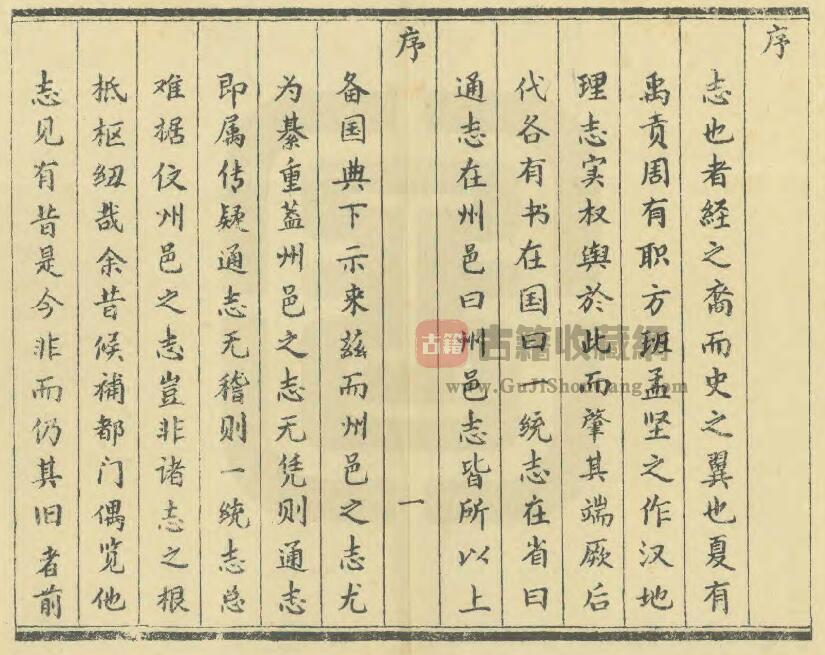 序
志也者経之裔而史之翼也夏有
禹贡周有职方班孟坚之作汉地
理志实权舆於此而肇其端厥后
代各有书在国曰一统志在省曰
通志在州邑曰州邑志皆所以上
序
一
备国典下示来兹而州邑之志尤
为綦重盖州邑之志无凭则通志
即属传疑通志无稽则一统志总
难据仅州邑之志豈非诸志之根
柢枢纽哉余昔候補都门偶览他
志见有昔是今非而仍其旧者前
古籍
古籍收藏網
www.GuJiShouCang.com